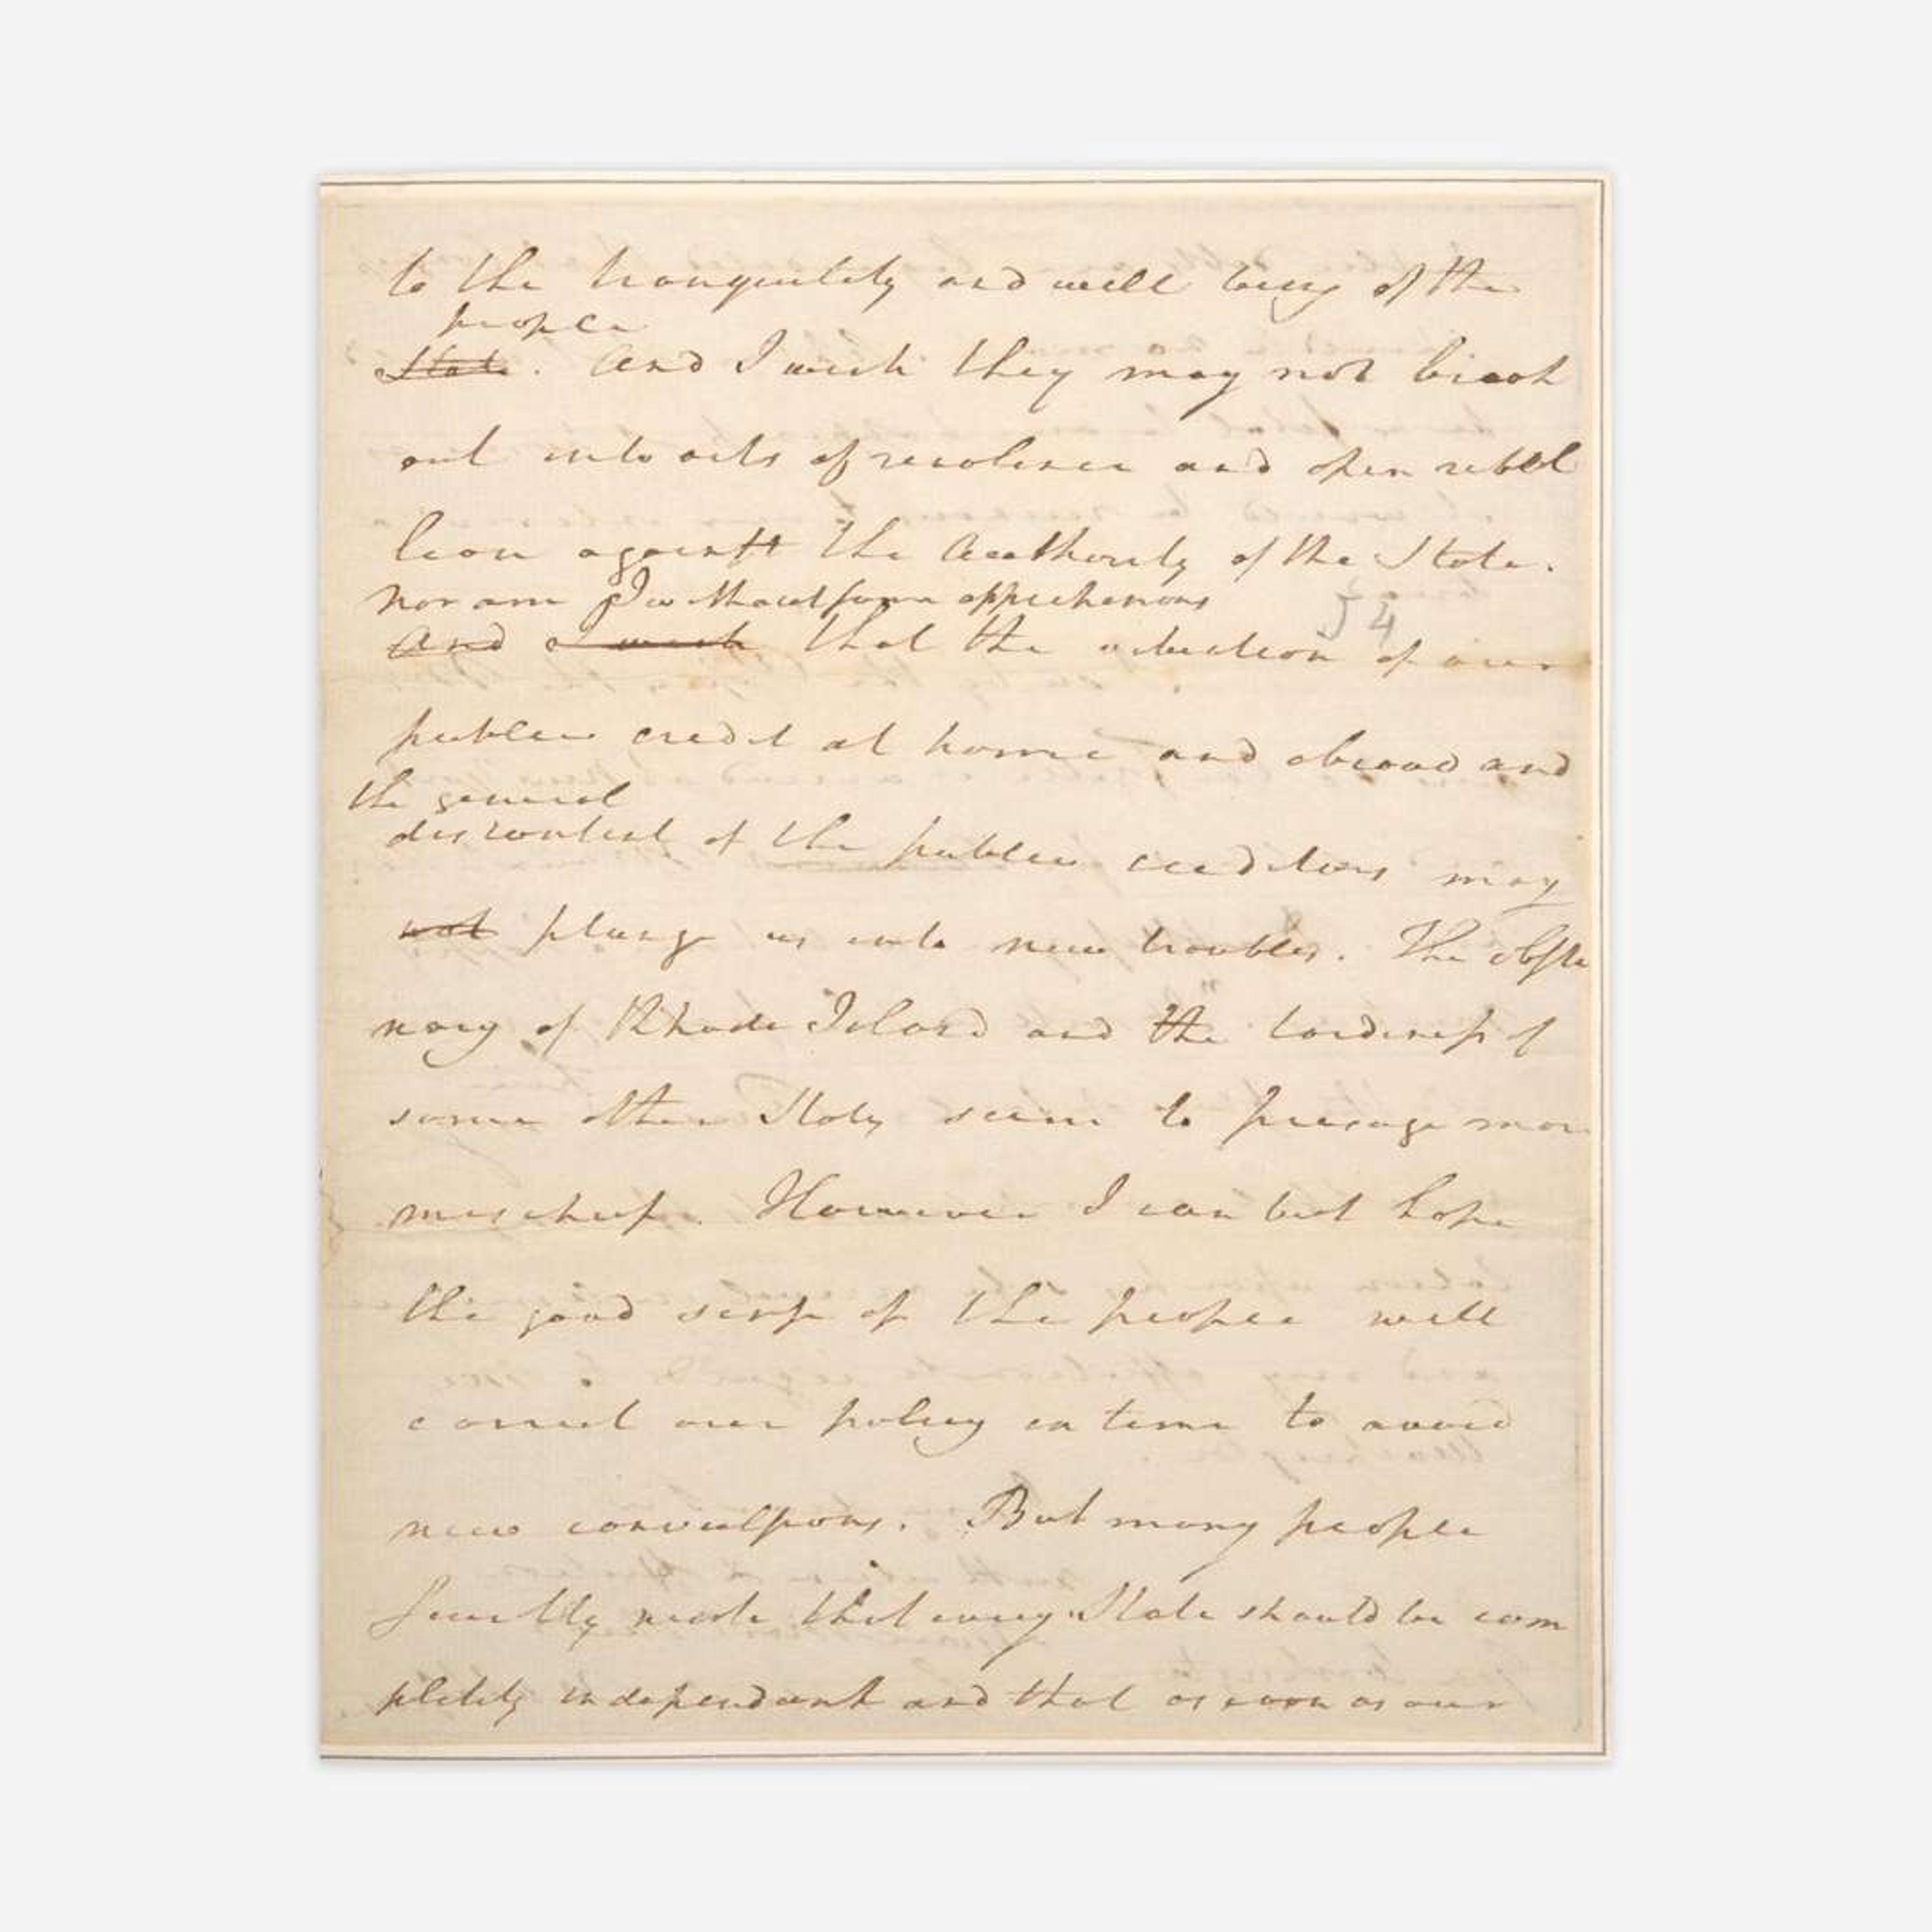 to the tranquility and well being of the
people
State. And I wish they may not break
out into acts of violence and open rebel
lion against the Authority of the State.
nor am I without some apprehensions
}4
And I wish that the situation of our
publick credit at home and abroad and
the general
discontent of the publick creditors may
not plunge us into new troubles. The obsti
nacy of Rhode Island and the tardiness of
some other States seem to presage more
mischief. However I can but hope
the good sense of the people will
correct our policy in time to avoid
new convulsions. But many people
secretly wish that every State should be com
pletely independant and that as soon as our